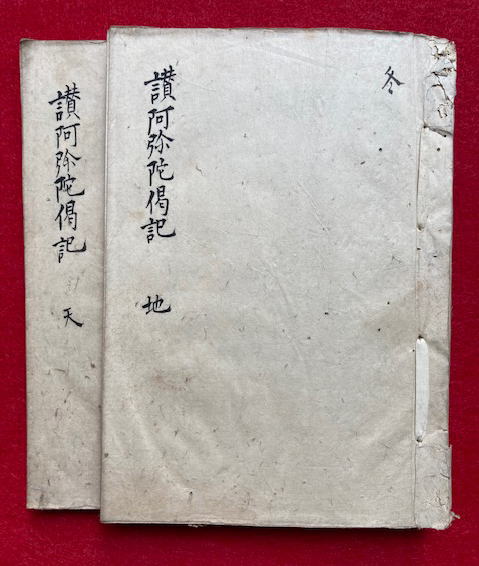 冬
讃阿弥陀偈記
地
讃阿弥陀偈記
天